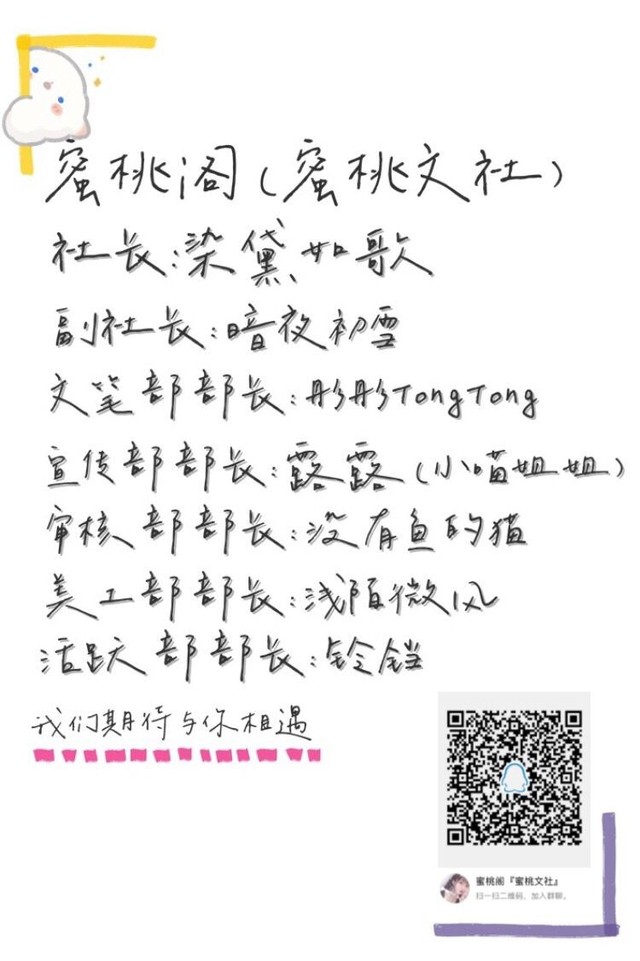 蜜桃阁(蜜桃文社)
社长:染黛如歌
副社长:暗夜初雪
文笔部部长:彤彤TongTong
宣传部部长:露露(小喵姐姐)
审核部部长:没有鱼的猫
美工部部长:浅陌微风
活跃部部长:铃铛
我们期待与你相遇
蜜桃阁『蜜桃文社』
扫一扫二维码，加入群聊。